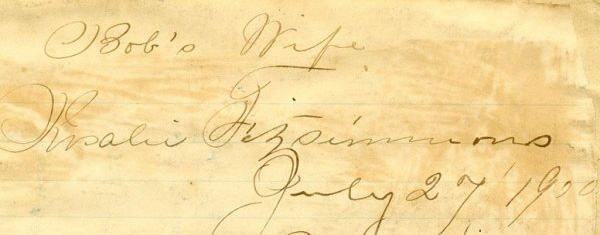 Bob's Wife
Rosalie Fitzsimmons
July 27 1900